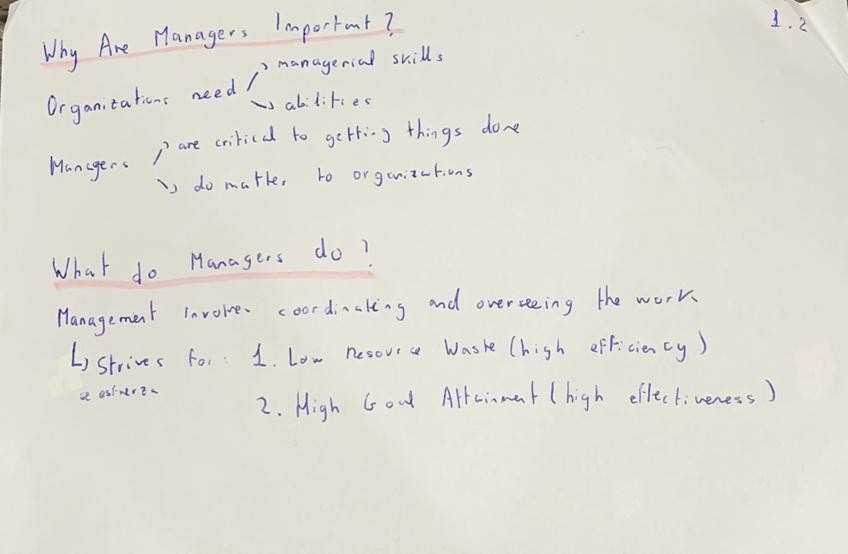 1.2
Why Are Managers Important?
Organizations need ↗ managerial skills
↘ abilities
Managers ↗ are critical to getting things done
↘ do matter to organizations
What do Managers do?
Management involves coordinating and overseeing the work
↳ Strives for: 1. Low Resource Waste (high efficiency)
se esfuerza
2. High Goal Attainment (high effectiveness)